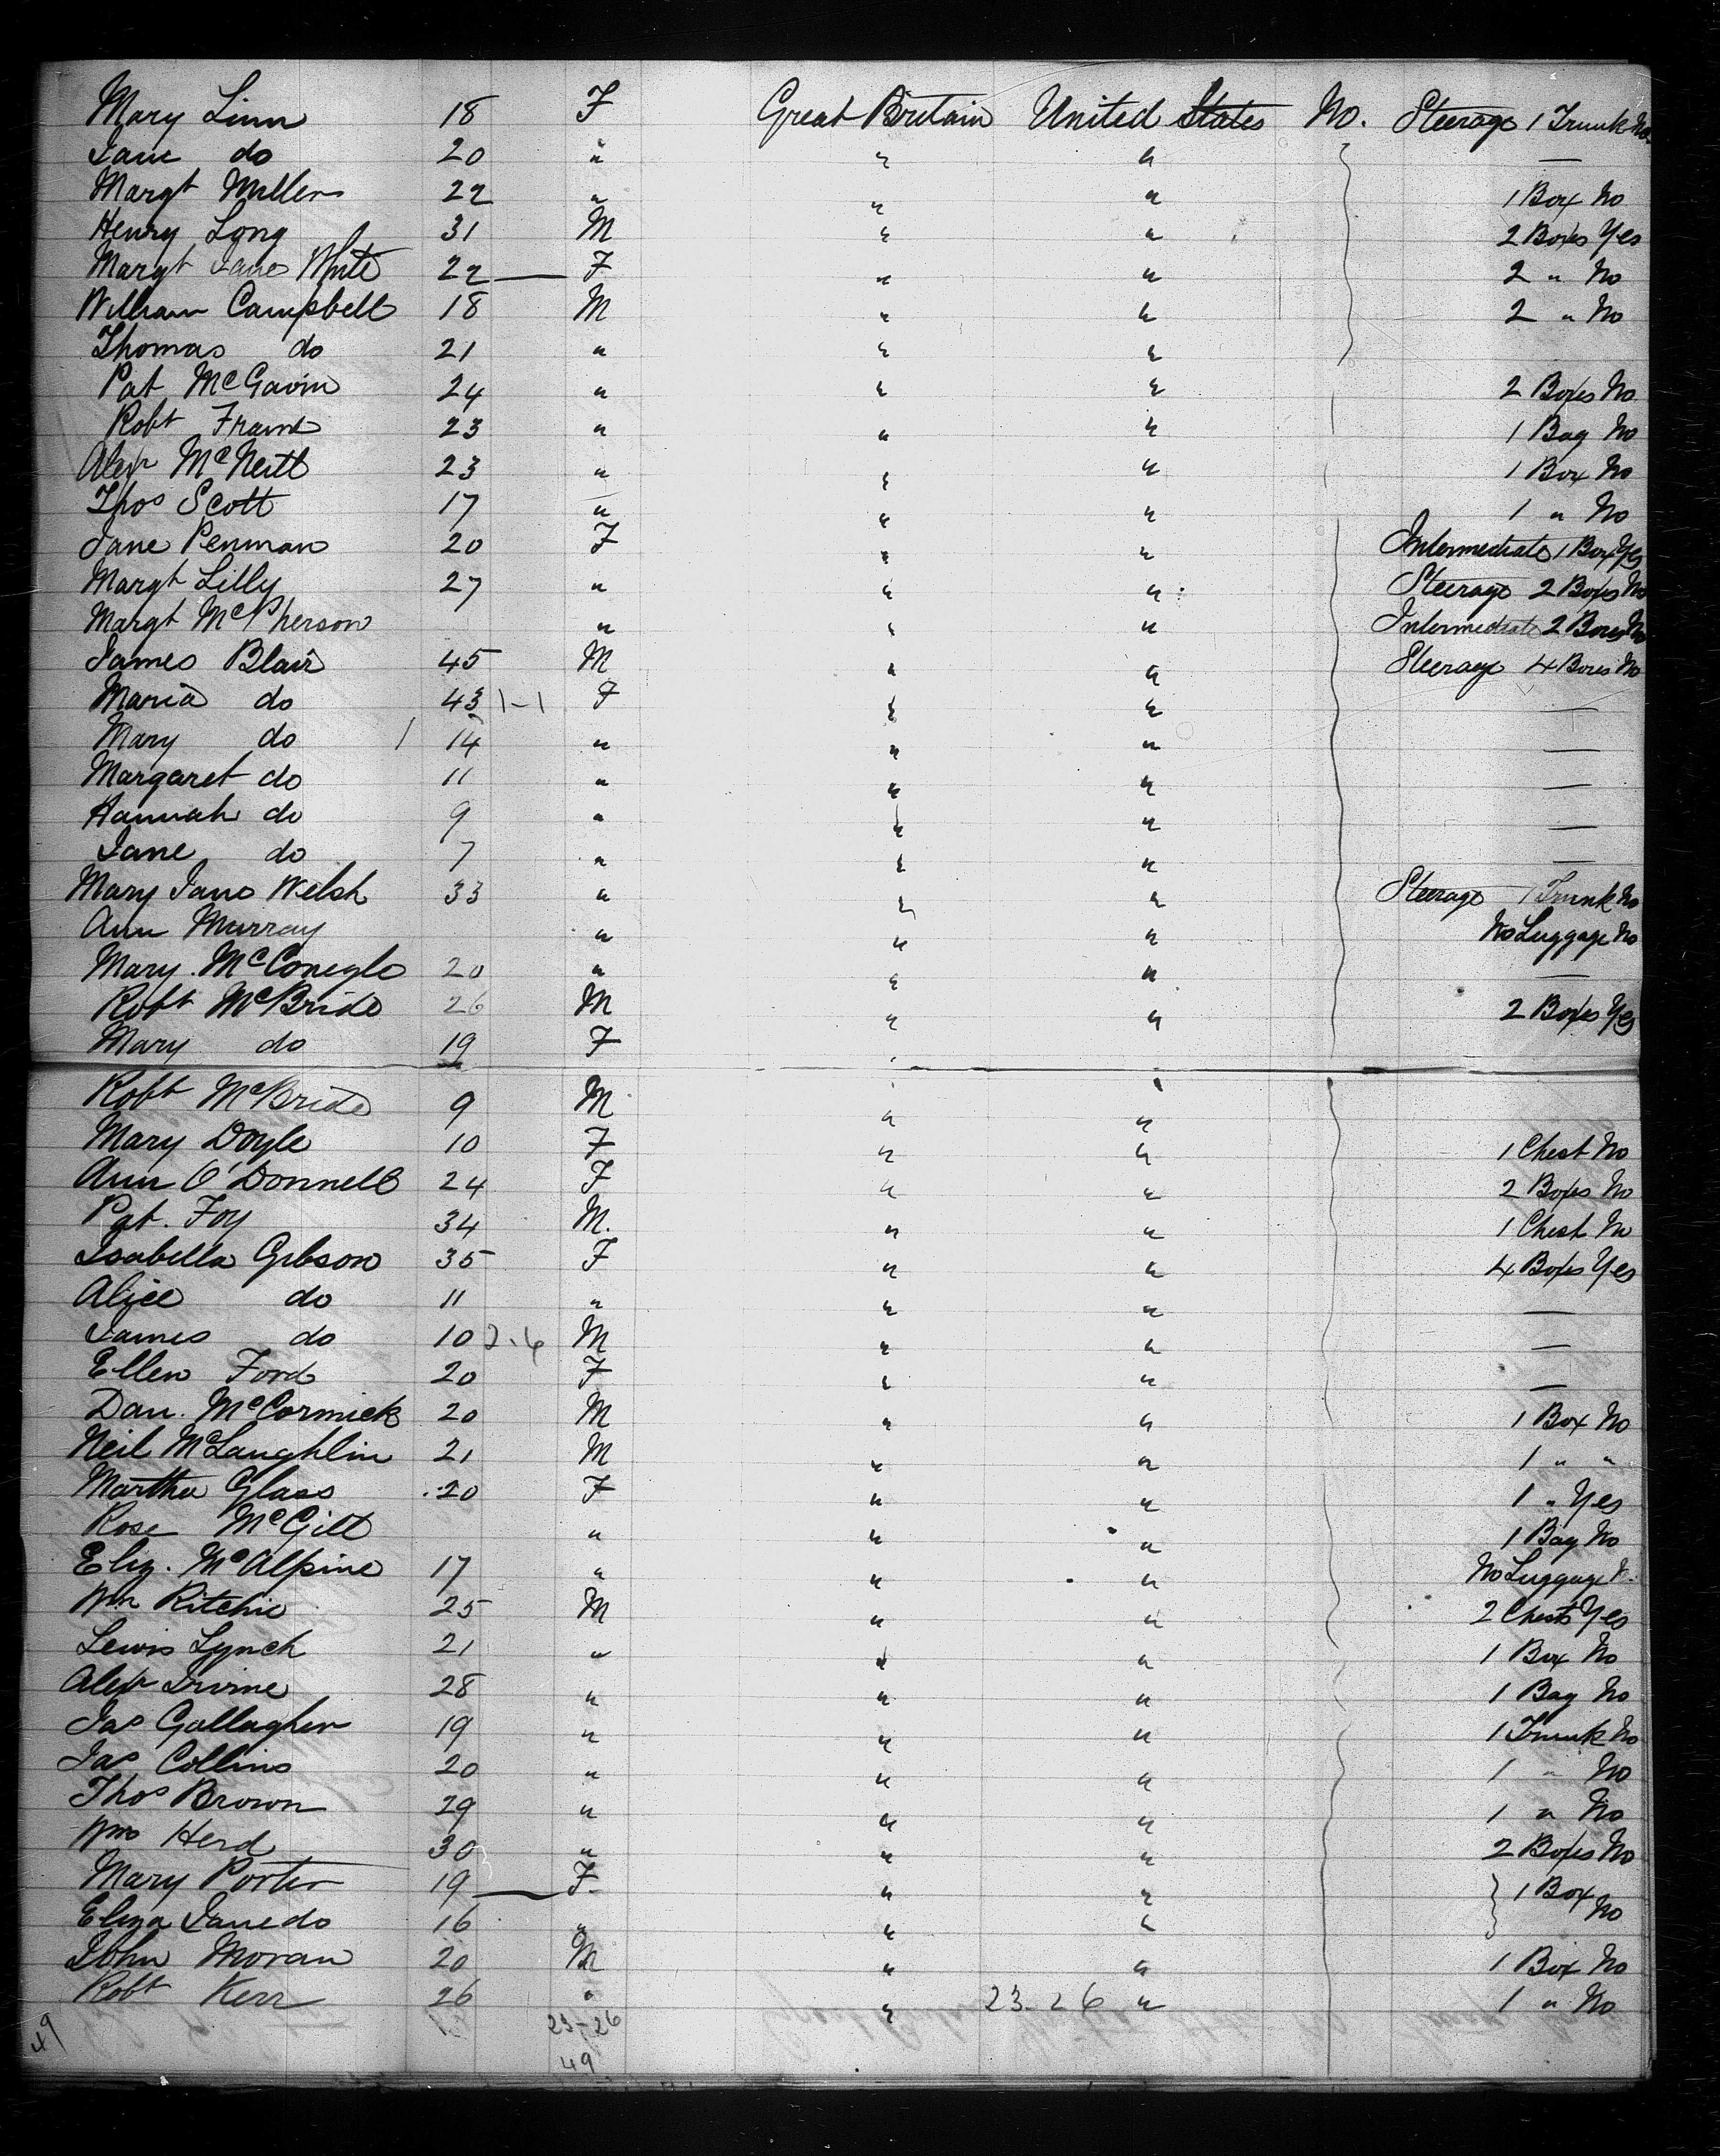 Mary Linn 18 F Great Britain United States No. Steerage 1 Trunk No
Jane do 20 " " " —
Margt Miller 22 " " " 1 Box No
Henry Long 31 M " " 2 Boxes Yes
Margt Jane White 22 — F " " 2 " No
William Campbell 18 M " " 2 " No
Thomas do 21 " " "
Pat McGavin 24 " " " 2 Boxes No
Robt Frame 23 " " " 1 Bag No
Alexr McNeill 23 " " " 1 Box No
Thos Scott 17 " " " 1 " No
Jane Penman 20 F " " Intermediate 1 Box Yes
Margt Lilly 27 " " " Steerage 2 Boxes No
Margt McPherson " " " Intermediate 2 Boxes No
James Blair 45 M " " Steerage 4 Boxes No
Maria do 43 1-1 F " " —
Mary do 1 14 " " " —
Margaret do 11 " " " —
Hannah do 9 " " " —
Jane do 7 " " " —
Mary Jane Welsh 33 " " " Steerage 1 Trunk No
Ann Murray " " " No Luggage No
Mary McConegle 20 " " " —
Robt McBride 26 M " " 2 Boxes Yes
Mary do 19 F " "
Robt McBride 9 M " "
Mary Doyle 10 F " " 1 Chest No
Ann O'Donnell 24 F " " 2 Boxes No
Pat. Foy 34 M. " " 1 Chest No
Isabella Gibson 35 F " " 4 Boxes Yes
Alice do 11 " " " —
James do 10 M " " —
Ellen Ford 20 F " " —
Dan. McCormick 20 M " " 1 Box No
Neil McLaughlin 21 M " " 1 " "
Martha Glass 20 F " " 1 " Yes
Rose McGill " " " 1 Bag No
Eliz. McAlpine 17 " " " No Luggage
Wm Ritchie 25 M " " 2 Chests Yes
Lewis Lynch 21 " " " 1 Box No
Alexr Irvine 28 " " " 1 Bag No
Jas Gallagher 19 " " " 1 Trunk No
Jas Collins 20 " " " 1 " No
Thos Brown 29 " " " 1 " No
Wm Herd 30 " " " 2 Boxes No
Mary Porter 19 — F " " 1 Box
Eliza Jane do 16 " " " No
John Moran 20 M " " 1 Box No
Robt Kerr 26 " " 23.26 " 1 " No
23-26
49
49